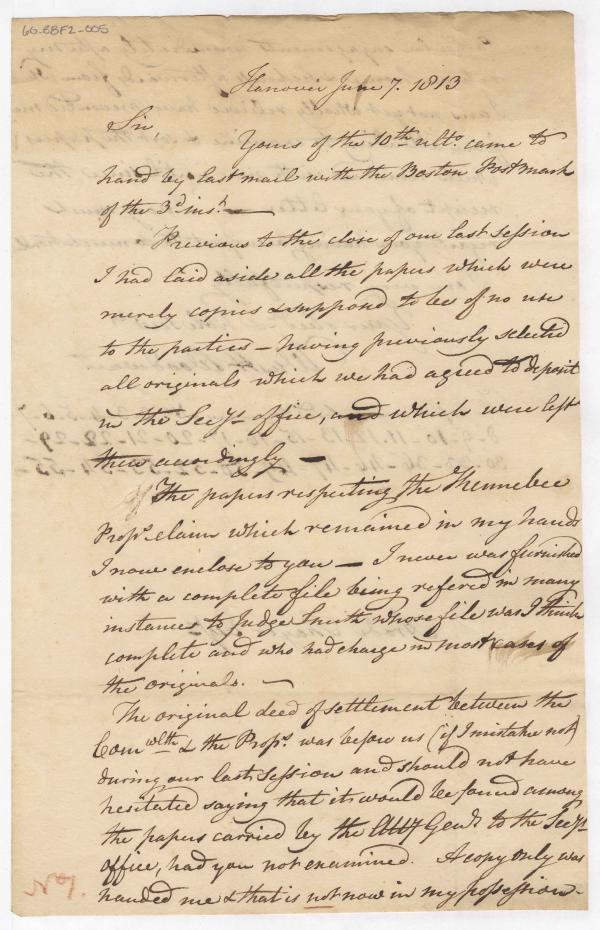 66-88F2-005
Hanover June 7. 1813
Sir,
Yours of the 10th ulto. came to
hand by last mail with the Boston Postmark
of the 3d inst. —
Previous to the close of our last session
I had laid aside all the papers which were
merely copies & supposd to be of no use
to the parties — having previously selected
all originals which we had agreed to deposit
in the Secys. office, and which were left
there accordingly —
The papers respecting the Kennebec
Props. claim which remained in my hands
I now enclose to you — I never was furnished
with a complete file being refered in many
instances to Judge Smith whose file was I think
complete and who had charge in most cases of
the originals. —
The original deed of settlement between the
Comwlth & the Props. was before us (if I mistake not)
during our last session and should not have
hesitated saying that it would be found among
the papers carried by the Atty Genl. to the Secys.
office, had you not examined. A copy only was
handed me & that is not now in my possession.
No 7.